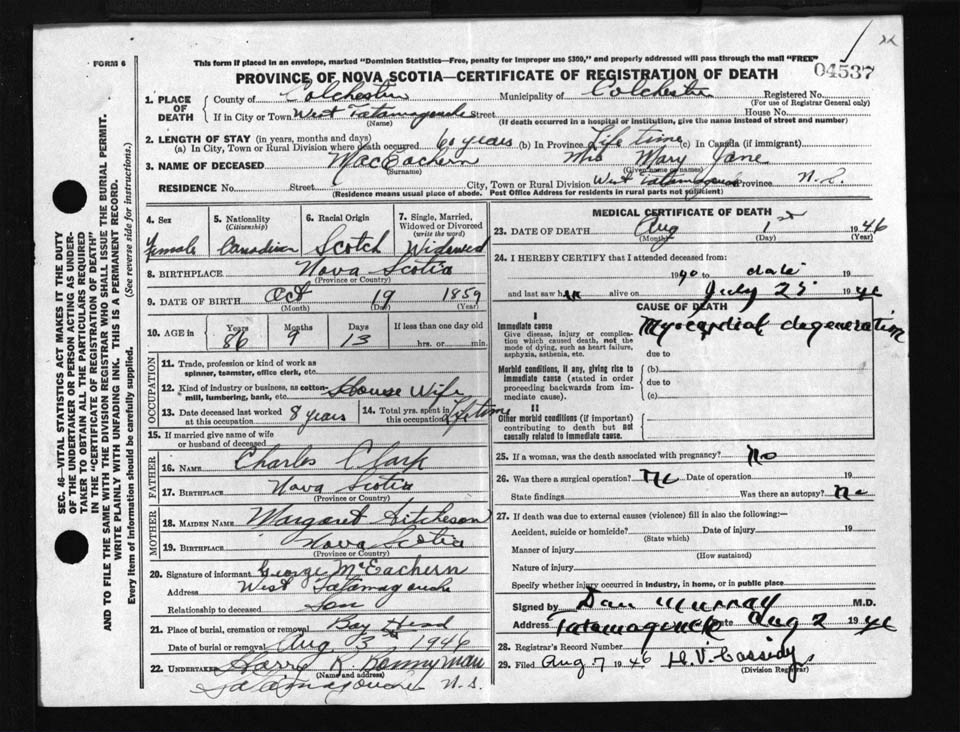 FORM 6
This form if placed in an envelope, marked "Dominion Statistics—Free, penalty for improper use $300," and properly addressed will pass through the mail "FREE"
04537
PROVINCE OF NOVA SCOTIA—CERTIFICATE OF REGISTRATION OF DEATH
SEC. 46—VITAL STATISTICS ACT MAKES IT THE DUTY
OF THE UNDERTAKER OR PERSON ACTING AS UNDER-
TAKER TO OBTAIN ALL THE PARTICULARS REQUIRED
IN THE "CERTIFICATE OF REGISTRATION OF DEATH"
AND TO FILE THE SAME WITH THE DIVISION REGISTRAR WHO SHALL ISSUE THE BURIAL PERMIT.
WRITE PLAINLY WITH UNFADING INK. THIS IS A PERMANENT RECORD.
Every item of Information should be carefully supplied. (See reverse side for instructions.)
1. PLACE OF DEATH
County of Colchester Municipality of Colchester Registered No.
(For use of Registrar General only)
If in City or Town West Tatamagouche Street House No.
(Name) (If death occurred in a hospital or institution, give the name instead of street and number)
2. LENGTH OF STAY (in years, months and days)
(a) In City, Town or Rural Division where death occurred 60 years (b) In Province Life time (c) In Canada (if immigrant)
3. NAME OF DECEASED MacEachern Mrs Mary Jane
(Surname) (Given name or names)
RESIDENCE No. Street City, Town or Rural Division West Tatamagouche Province N.S.
(Residence means usual place of abode. Post Office Address for residents in rural parts not sufficient)
4. Sex Female
5. Nationality (Citizenship) Canadian
6. Racial Origin Scotch
7. Single, Married, Widowed or Divorced (write the word) Widowed
8. BIRTHPLACE Nova Scotia
(Province or Country)
9. DATE OF BIRTH Oct 19 1859
(Month) (Day) (Year)
10. AGE in Years 86 Months 9 Days 13 If less than one day old hrs. or min.
OCCUPATION
11. Trade, profession or kind of work as spinner, teamster, office clerk, etc.
12. Kind of industry or business, as cotton-mill, lumbering, bank, etc. House Wife
13. Date deceased last worked at this occupation 8 years
14. Total yrs. spent in this occupation Lifetime
15. If married give name of wife or husband of deceased
FATHER
16. NAME Charles Clark
17. BIRTHPLACE Nova Scotia
(Province or Country)
MOTHER
18. MAIDEN NAME Margaret Aitcheson
19. BIRTHPLACE Nova Scotia
(Province or Country)
20. Signature of informant George McEachern
Address West Tatamagouche
Relationship to deceased Son
21. Place of burial, cremation or removal Bay Head
Date of burial or removal Aug 3 1946
22. UNDERTAKER Harry K. Bonnyman
(Name and address)
Tatamagouche N.S.
MEDICAL CERTIFICATE OF DEATH
23. DATE OF DEATH Aug 1 1946
(Month) (Day) (Year)
24. I HEREBY CERTIFY that I attended deceased from:
1940 to date 19
and last saw her alive on July 25 1946
CAUSE OF DEATH
I
Immediate cause
Give disease, injury or complication which caused death, not the mode of dying, such as heart failure, asphyxia, asthenia, etc.
Myocardial degeneration
due to
Morbid conditions, if any, giving rise to immediate cause (stated in order proceeding backwards from immediate cause).
(b)
due to
(c)
II
Other morbid conditions (if important) contributing to death but not causally related to immediate cause.
25. If a woman, was the death associated with pregnancy? No
26. Was there a surgical operation? No Date of operation 19
State findings Was there an autopsy? No
27. If death was due to external causes (violence) fill in also the following:—
Accident, suicide or homicide? Date of injury 19
(State which)
Manner of injury
(How sustained)
Nature of injury
Specify whether injury occurred in industry, in home, or in public place
Signed by Dan Murray M.D.
Address Tatamagouche Date Aug 2 1946
28. Registrar's Record Number
29. Filed Aug 7 1946 H.V. Cassidy
(Division Registrar)